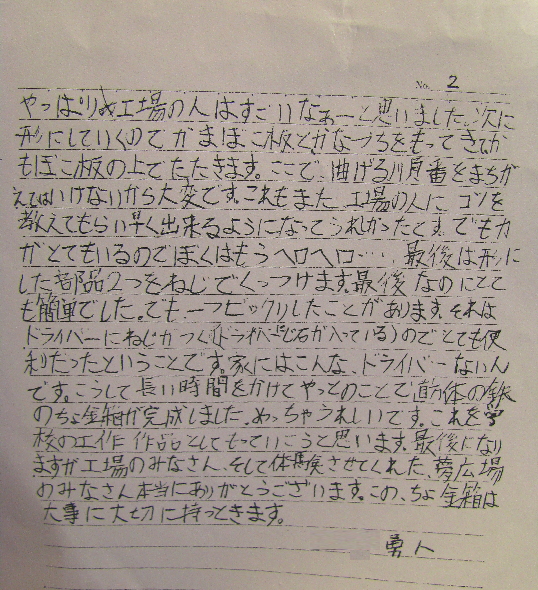 No. 2
やっぱり工場の人はすごいなぁーと思いました。次に
形にしていくのでかまぼこ板とかなづちをもってきてか
まぼこ板の上でたたきます。ここで、曲げる順番をまちが
えてはいけないから大変です。これもまた、工場の人に コツを
教えてもらい早く出来るようになってうれしかったです。でも力
がとてもいるのでぼくはもうヘロヘロ…。最後は形に
した部品2つをねじでくっつけます。最後なのにとて
も簡単でした。でも一つビックリしたことがあります。それは
ドライバーにねじがつく(ドライバーにじ石が入っている)のでとても便
利だったということです。家にはこんな、ドライバーないん
です。こうして長い時間をかけてやっとのことで直方体の鉄
のちょ金箱が完成しました。めっちゃうれしいです。これを学
校の工作 作品としてもっていこうと思います。最後になり
ますが工場のみなさん、そして体験させてくれた、夢広場
のみなさん本当にありがとうございます。この、ちょ金箱は
大事に大切に持っときます。
勇人